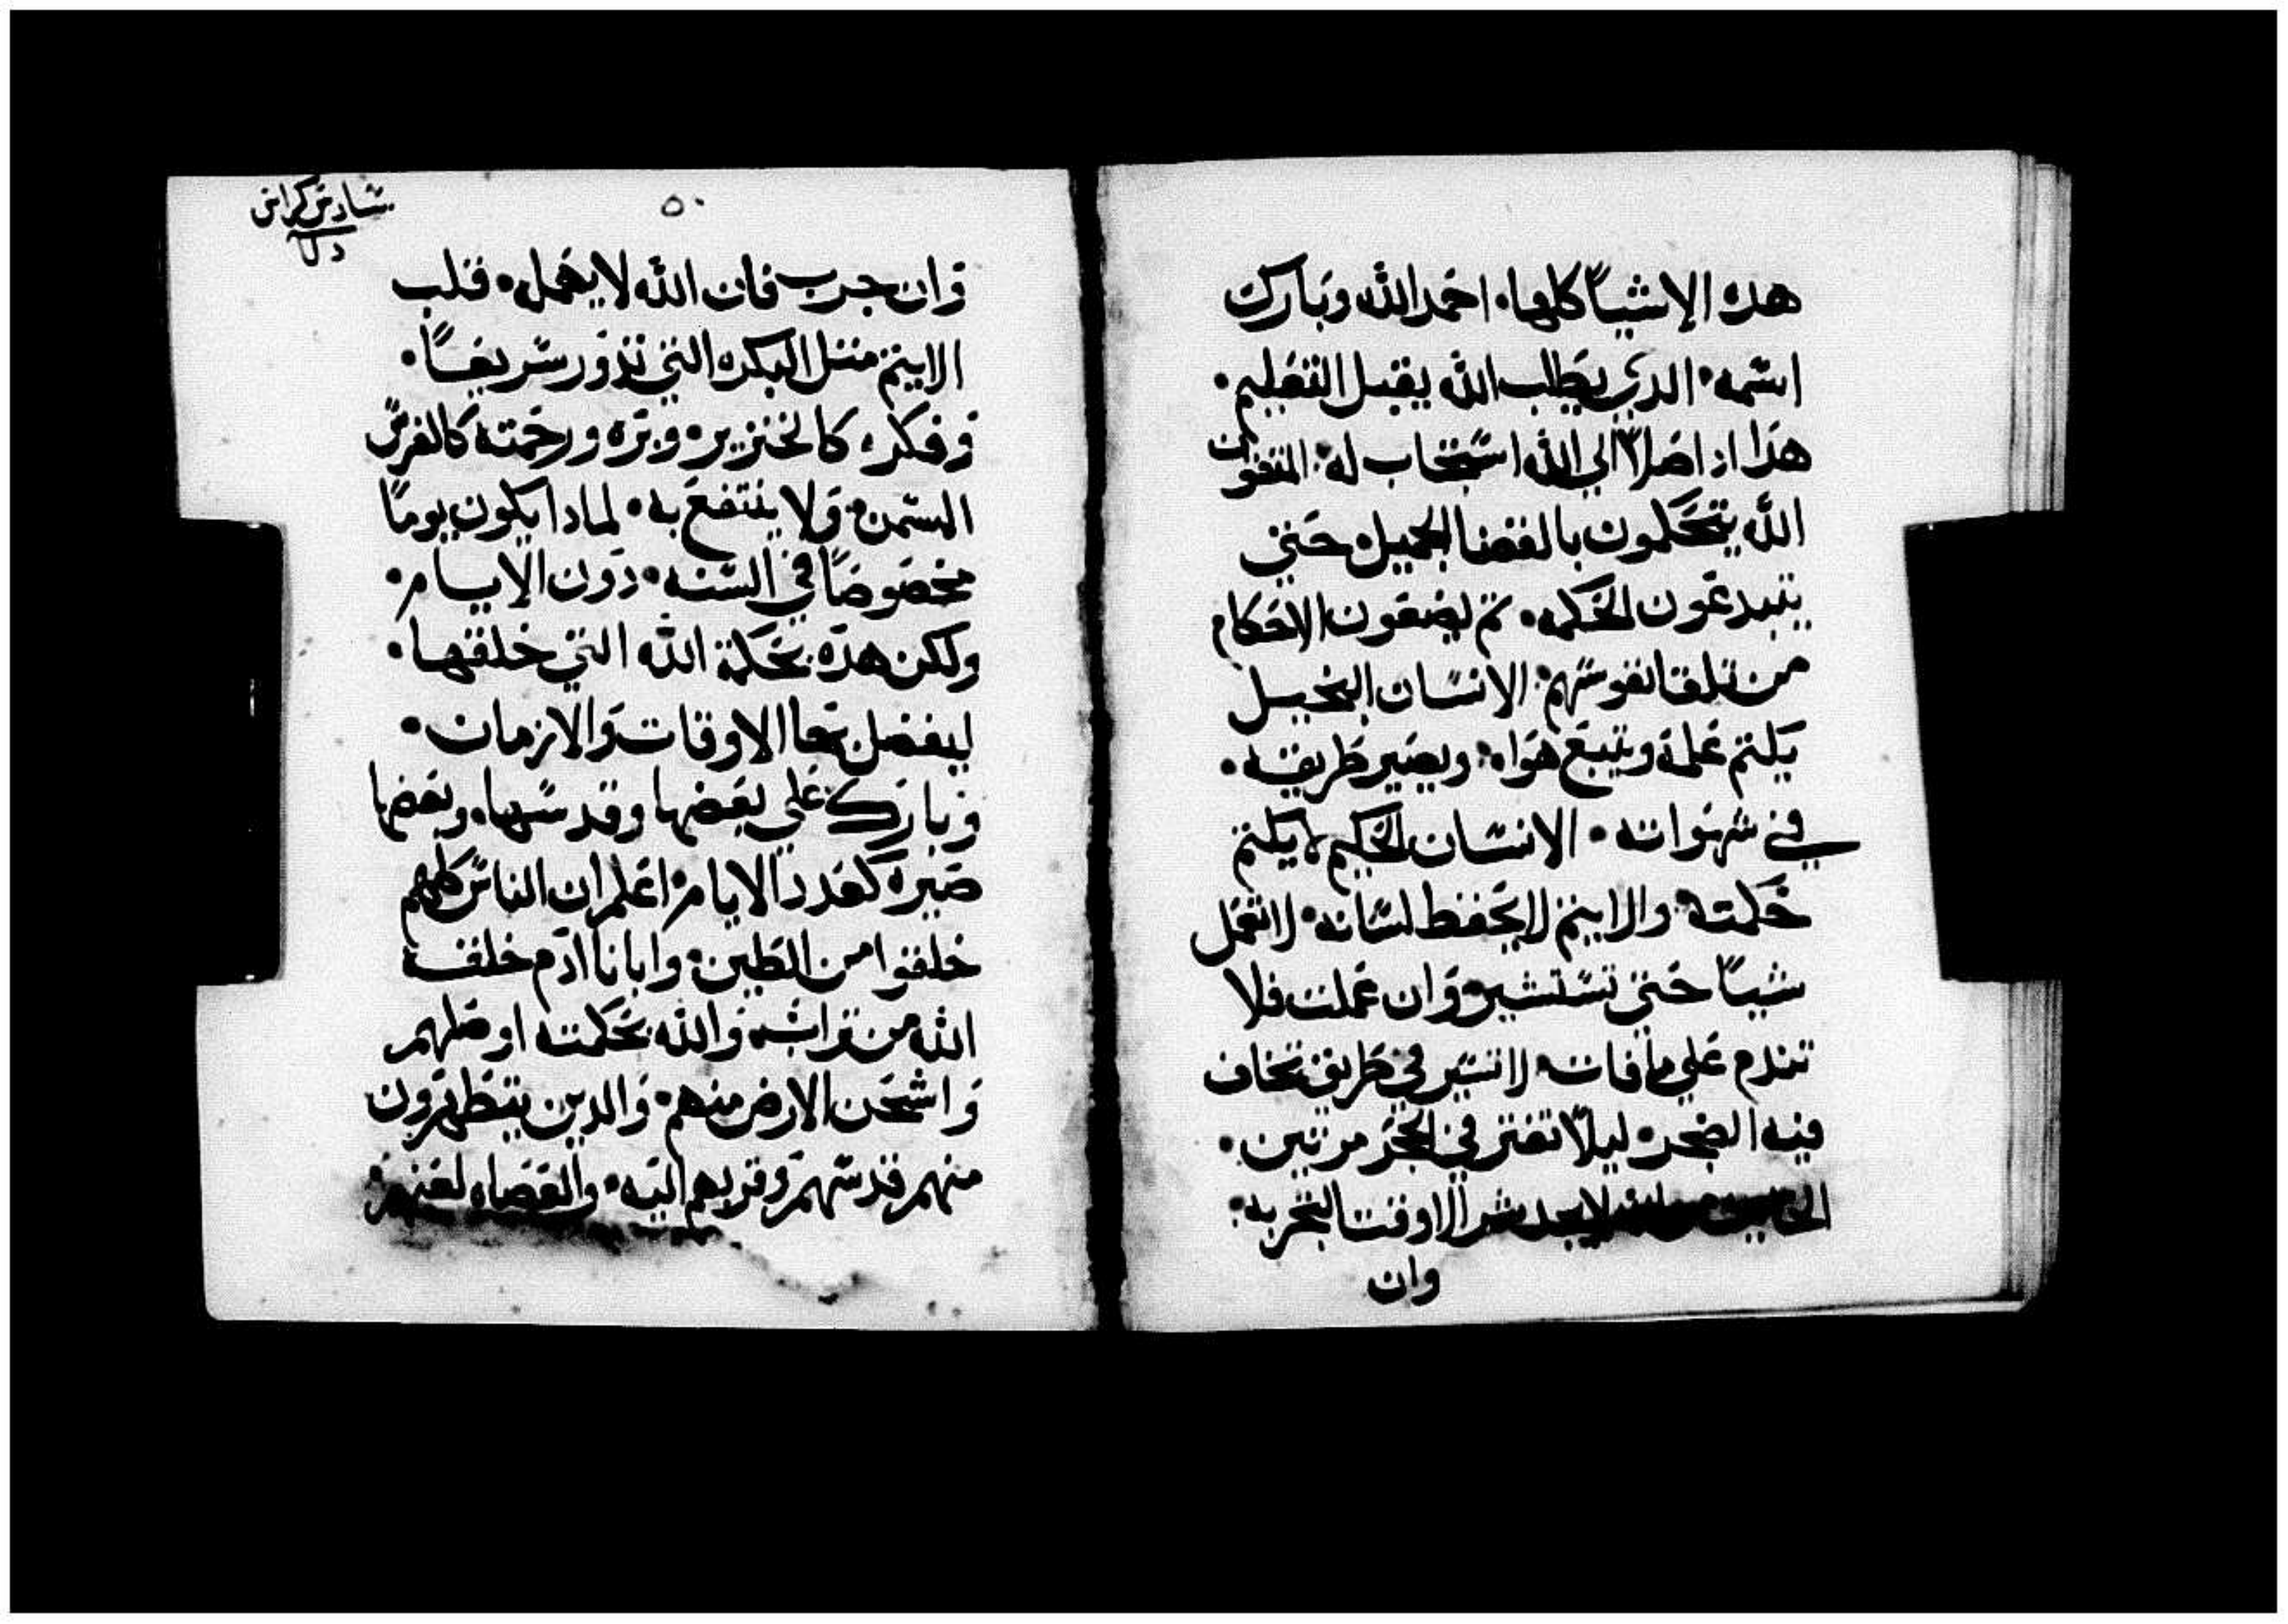 هده الاشيآ كلها٠ احمد الله وبارك
اسمه٠ الدي يطلب الله يقبل التعليم٠
هدا ادا صلا الي الله استجاب له٠ المتقون
الله يتحكمون بالقضا الجميل٠ حتي
يتبدعون الحكمه٠ تم يضعون الاحكام
من تلقا نفوسهم٠ الانسان البخيل
يكتم علمه ويتبع هواه٠ ويصير طريقه٠
في شهواته٠ الانسان الحكيم لا يكتم
حكمته٠ والاتيم لا يحفظ لسانه٠ لا تعمل
شيآ حتي تستشير٠ وان عملت فلا
تندم علي ما فات٠ لا تسير في طريق تخاف
فيه الضجر٠ ليلا تعتر في الحجر مرتين٠
الله لا يجد شرا الا وقت التجربه٠
وان
٥٠
سادس كراس
وان جرب فان الله لا يهمل٠ قلب
الاتيم متل البكره التي تدور سريعًا٠
وفكره كالخنزيره وبره ورحمته كالفرس
السمن٠ ولا ينتفع به٠ لمادا يكون يومًا
مخصوصًا في السنه٠ دون الايام٠
ولكن هده بحكمة الله التي خلقها٠
ليفضل بها الاوقات والازمان٠
وبارك علي بعضها وقدسها٠ وبعضها
صيره كعدد الايام٠ اعلم ان الناس كلهم
خلقوا من الطين٠ وابانا ادم خلقه
الله من تراب٠ والله بحكمته اوصلهم
واشحن الارض منهم٠ والدين يتطهرون
منهم قدسهم وقربهم اليه٠ والعصاه لعنهم٠